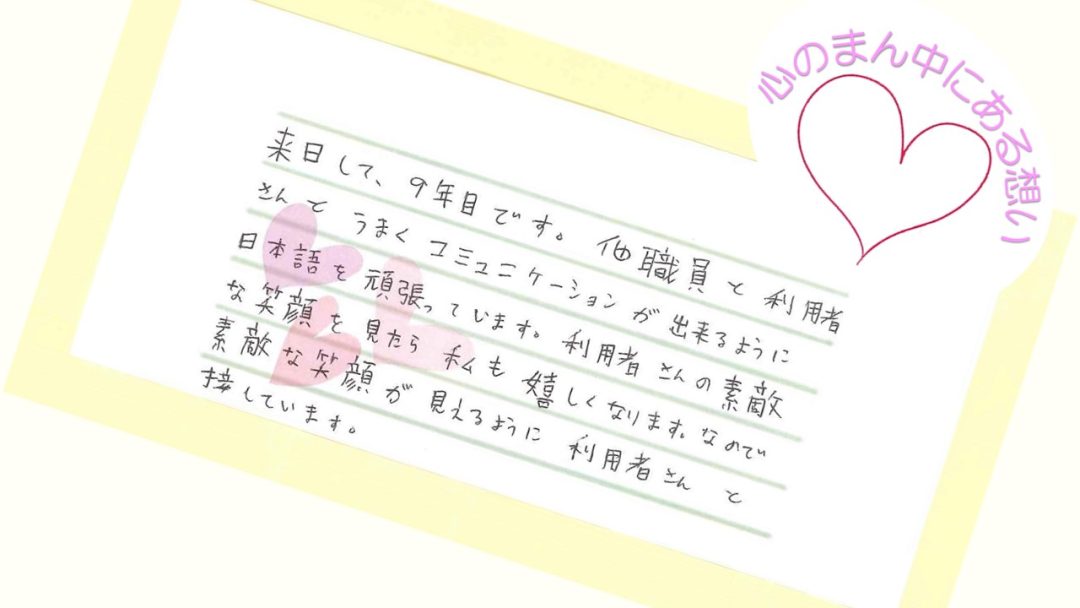 心のまん中にある想い
来日して、9年目です。他職員と利用者
さんとうまくコミュニケーションが出来るように
日本語を頑張っています。利用者さんの素敵
な笑顔を見たら私も嬉しくなります。なので
素敵な笑顔が見えるように利用者さんと
接しています。